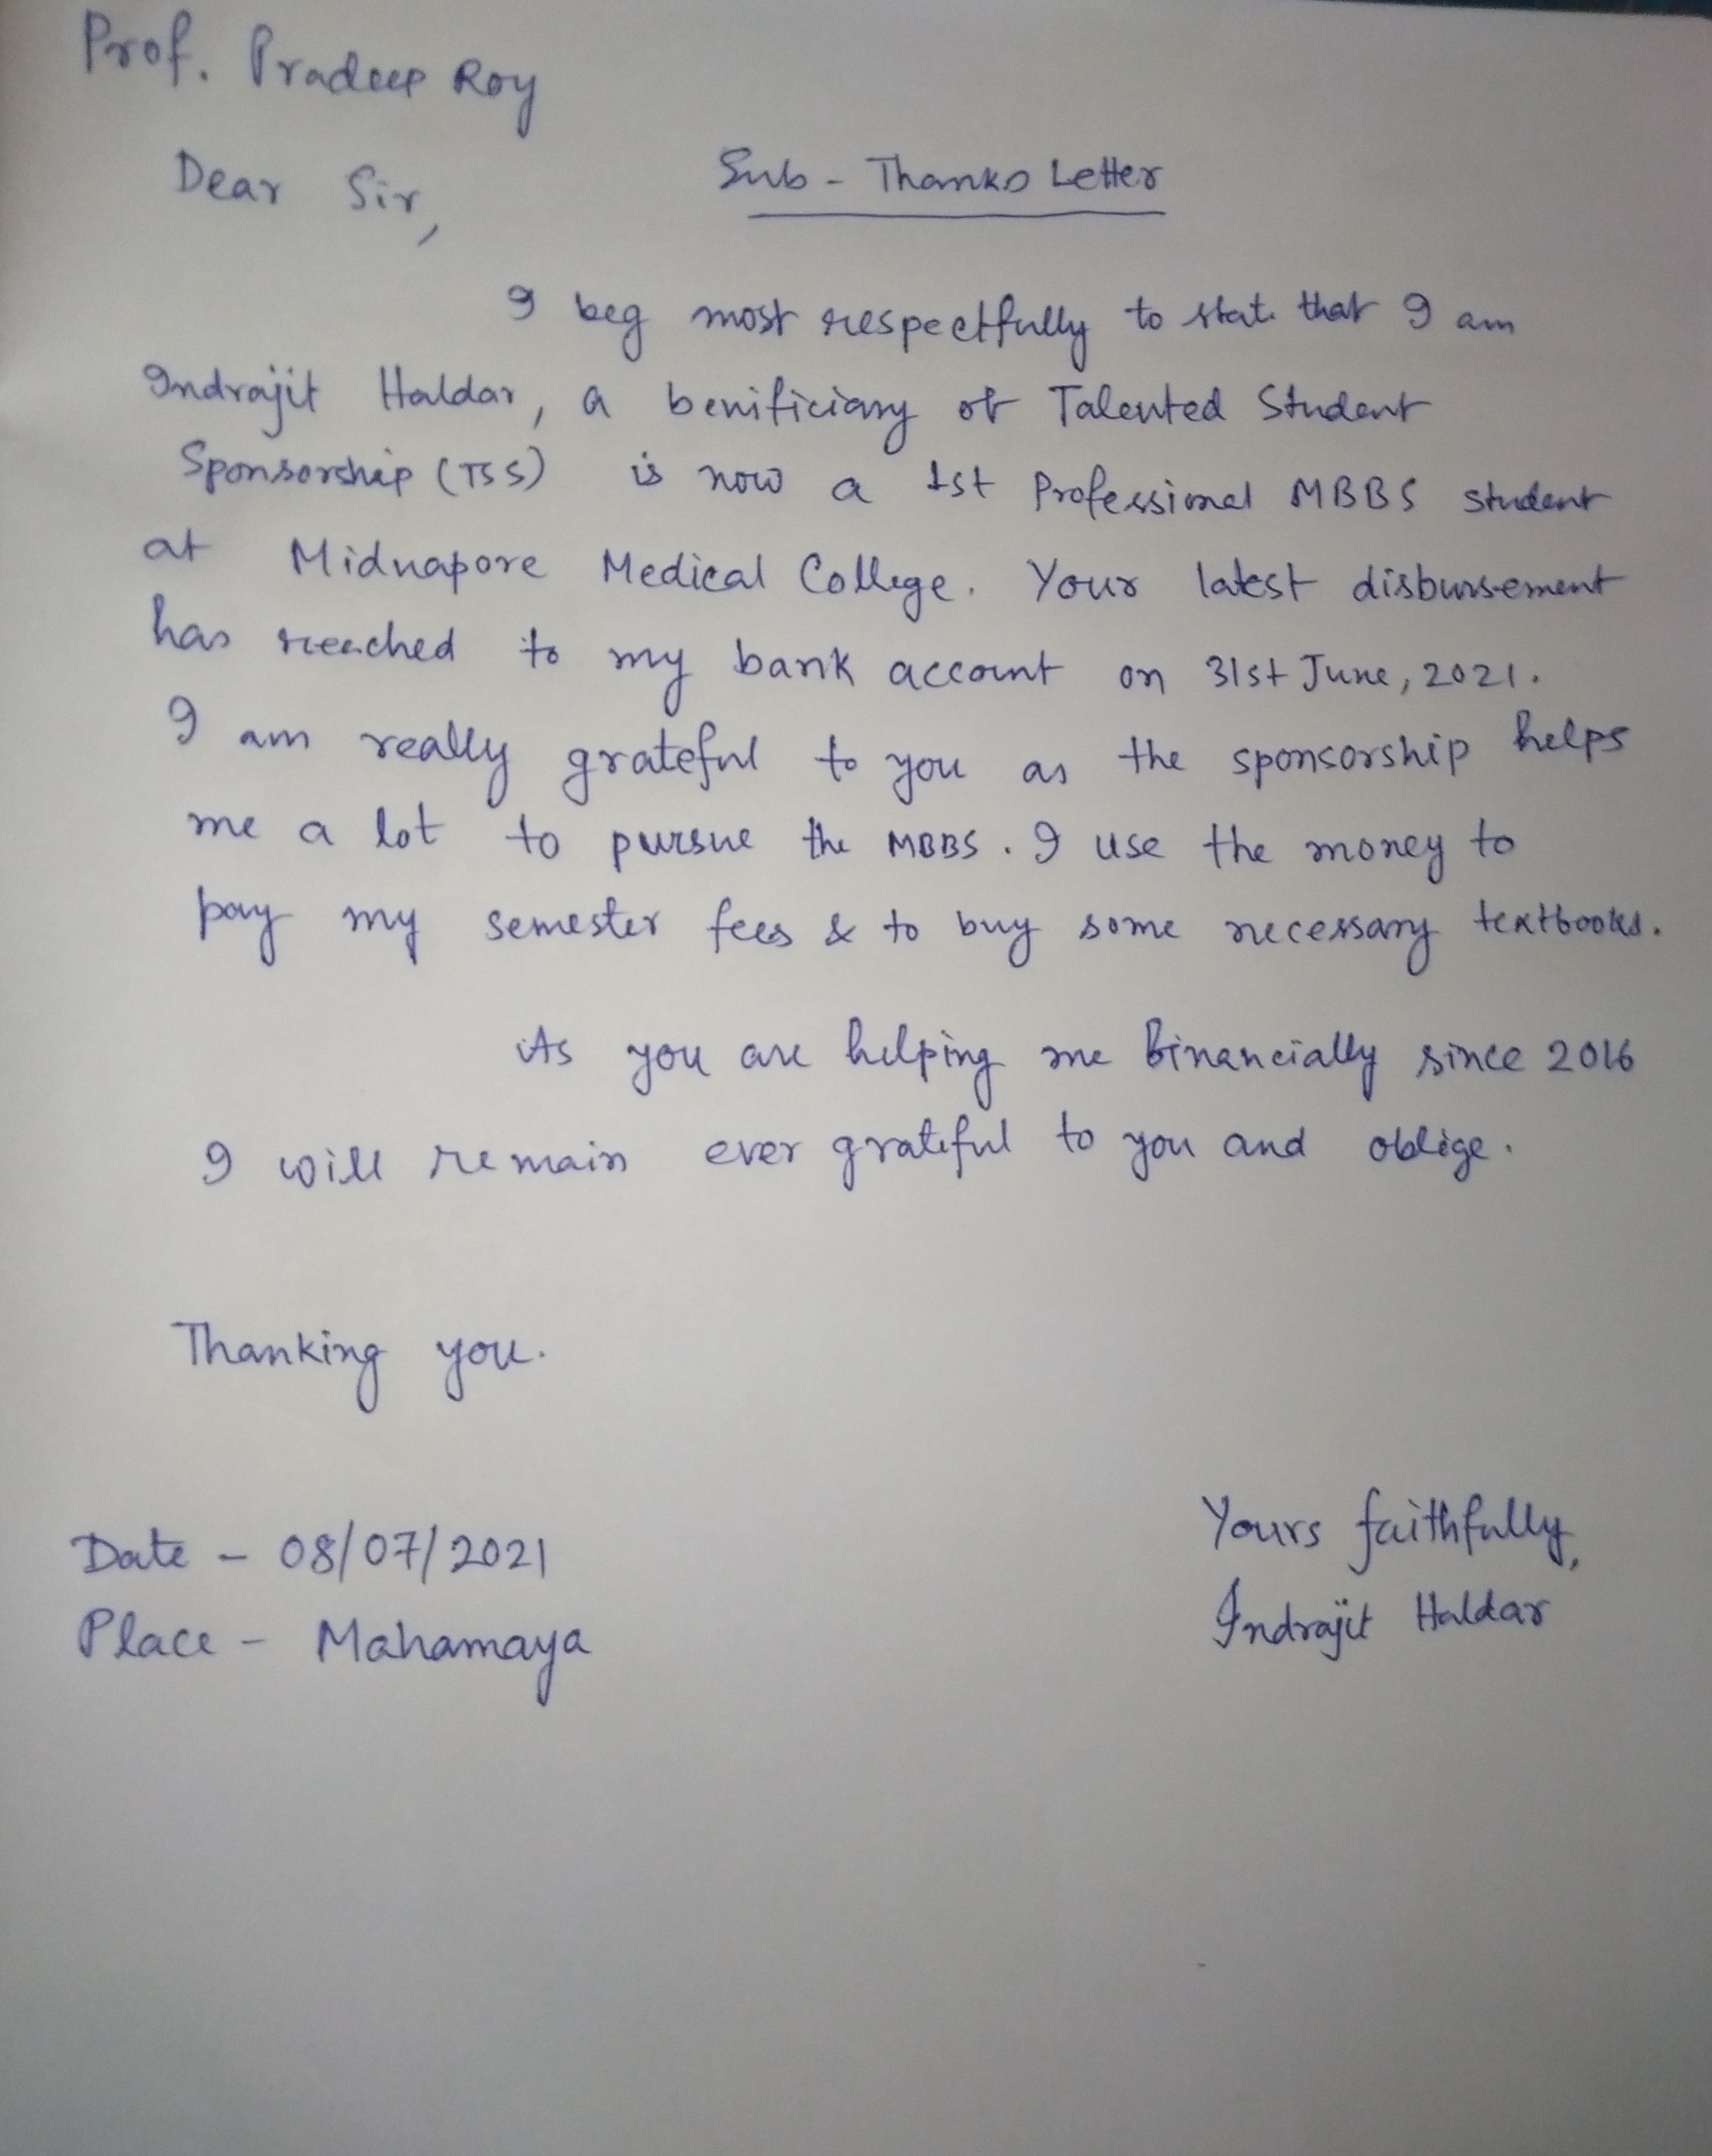 Prof. Pradeep Roy
Dear Sir,
Sub - Thanks Letter
I beg most respectfully to state that I am
Indrajit Haldar, a benificiary of Talented Student
Sponsorship (TSS) is now a 1st Professional MBBS student
at Midnapore Medical College. Your latest disbursement
has reached to my bank account on 31st June, 2021.
I am really grateful to you as the sponsorship helps
me a lot to pursue the MBBS. I use the money to
pay my semester fees & to buy some necessary textbooks.
As you are helping me financially since 2016
I will remain ever grateful to you and oblige.
Thanking you.
Date - 08/07/2021
Place - Mahamaya
Yours faithfully,
Indrajit Haldar